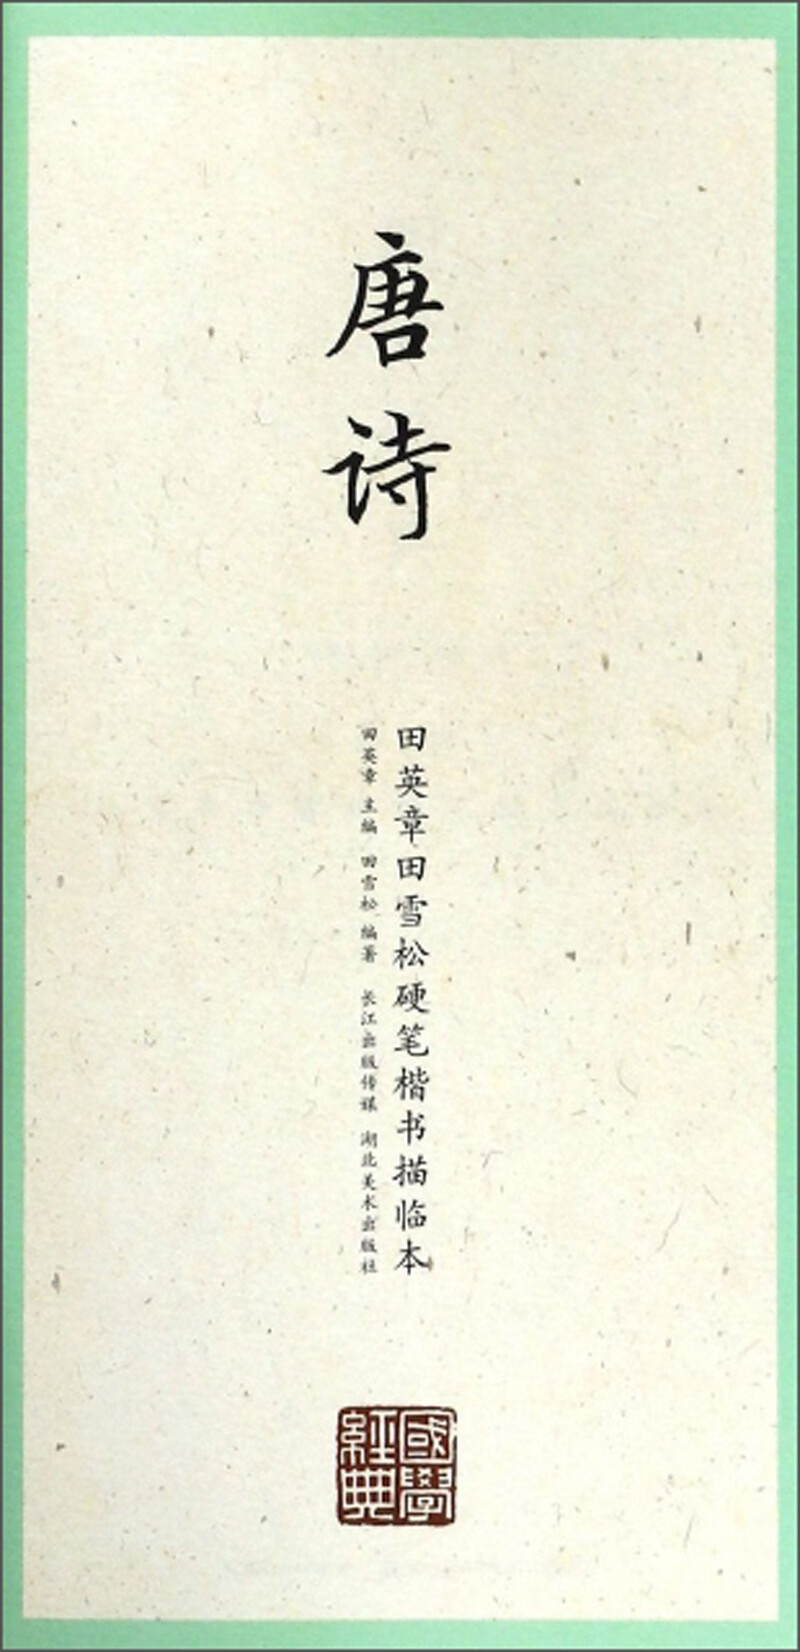 唐诗
田英章田雪松硬笔楷书描临本
田英章 主编 田雪松 编著 长江出版传媒 湖北美术出版社
國學
經典